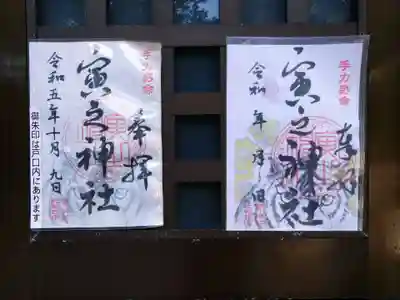 手力男命
奉拝
寅之神社
令和五年十月九日
御朱印は戸口内にあります
手力男命
奉拝
寅之神社
令和 年 月 日